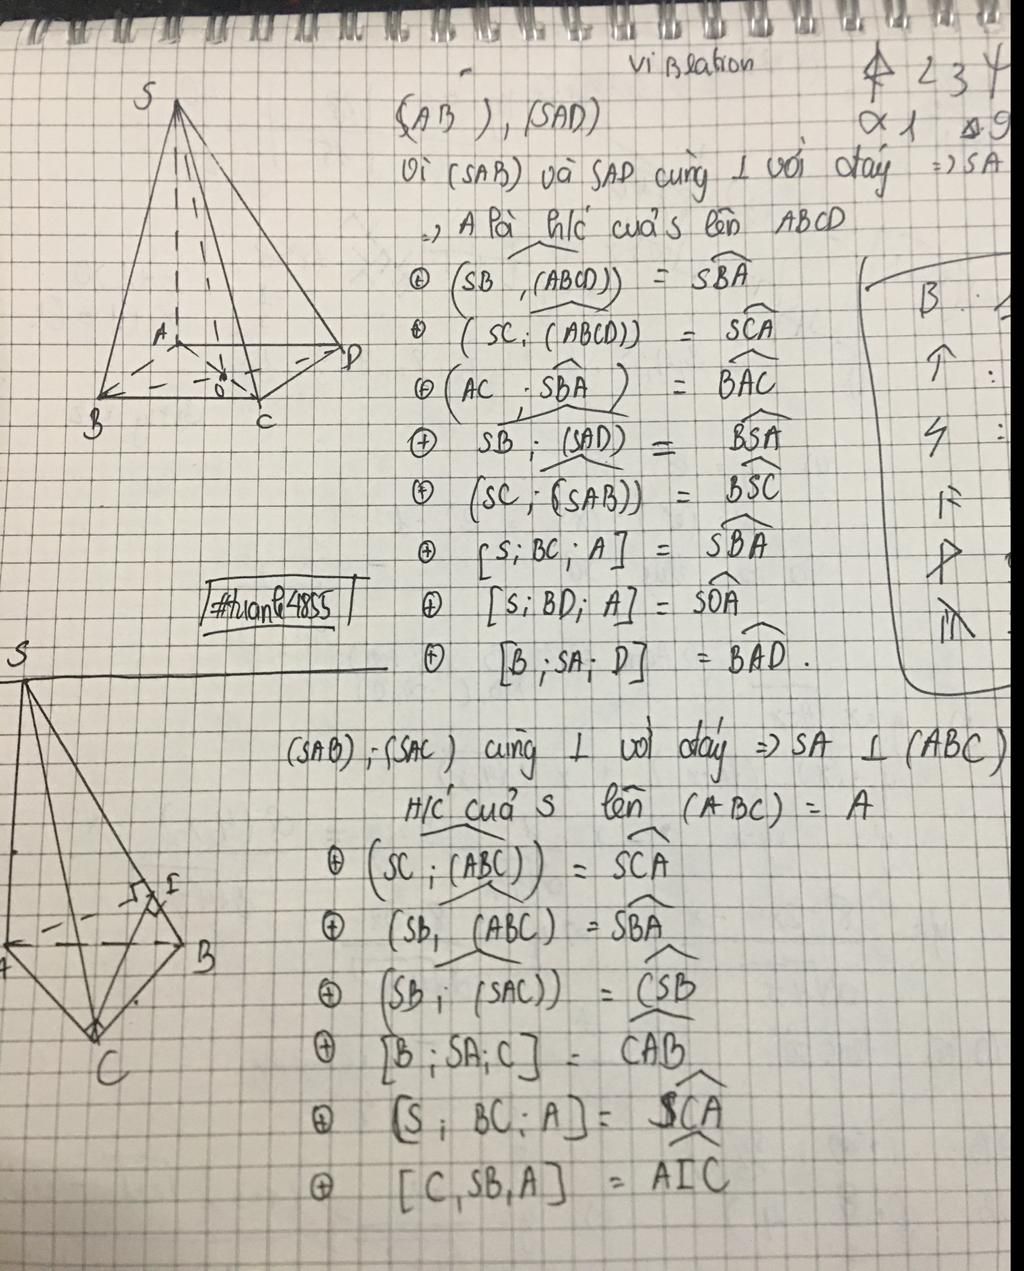 Vi Blation
(AB ), (SAD)
Vì (SAB) và SAD cùng ⊥ với đáy => SA
=> A là h/c của S lên ABCD
⊕ (SB , (ABCD)) = SBA
⊕ (SC; (ABCD)) = SCA
⊕ (AC ; SBA ) = BAC
⊕ SB ; (SAD) = BSA
⊕ (SC; (SAB)) = BSC
⊕ [S; BC; A] = SBA
⊕ [S; BD; A] = SOA
⊕ [B ; SA; D] = BAD .
S
A
B
C
D
O
#tuanle4855
2 3 4
α 1
B
↑
4
F
P
(SAB) ; (SAC) cùng ⊥ với đáy => SA ⊥ (ABC)
H/C của S lên (ABC) = A
⊕ (SC ; (ABC)) = SCA
⊕ (SB, (ABC) = SBA
⊕ (SB ; (SAC)) = CSB
⊕ [B ; SA; C] = CAB
⊕ [S ; BC; A] = SCA
⊕ [C, SB, A] = AIC
S
I
A
B
C